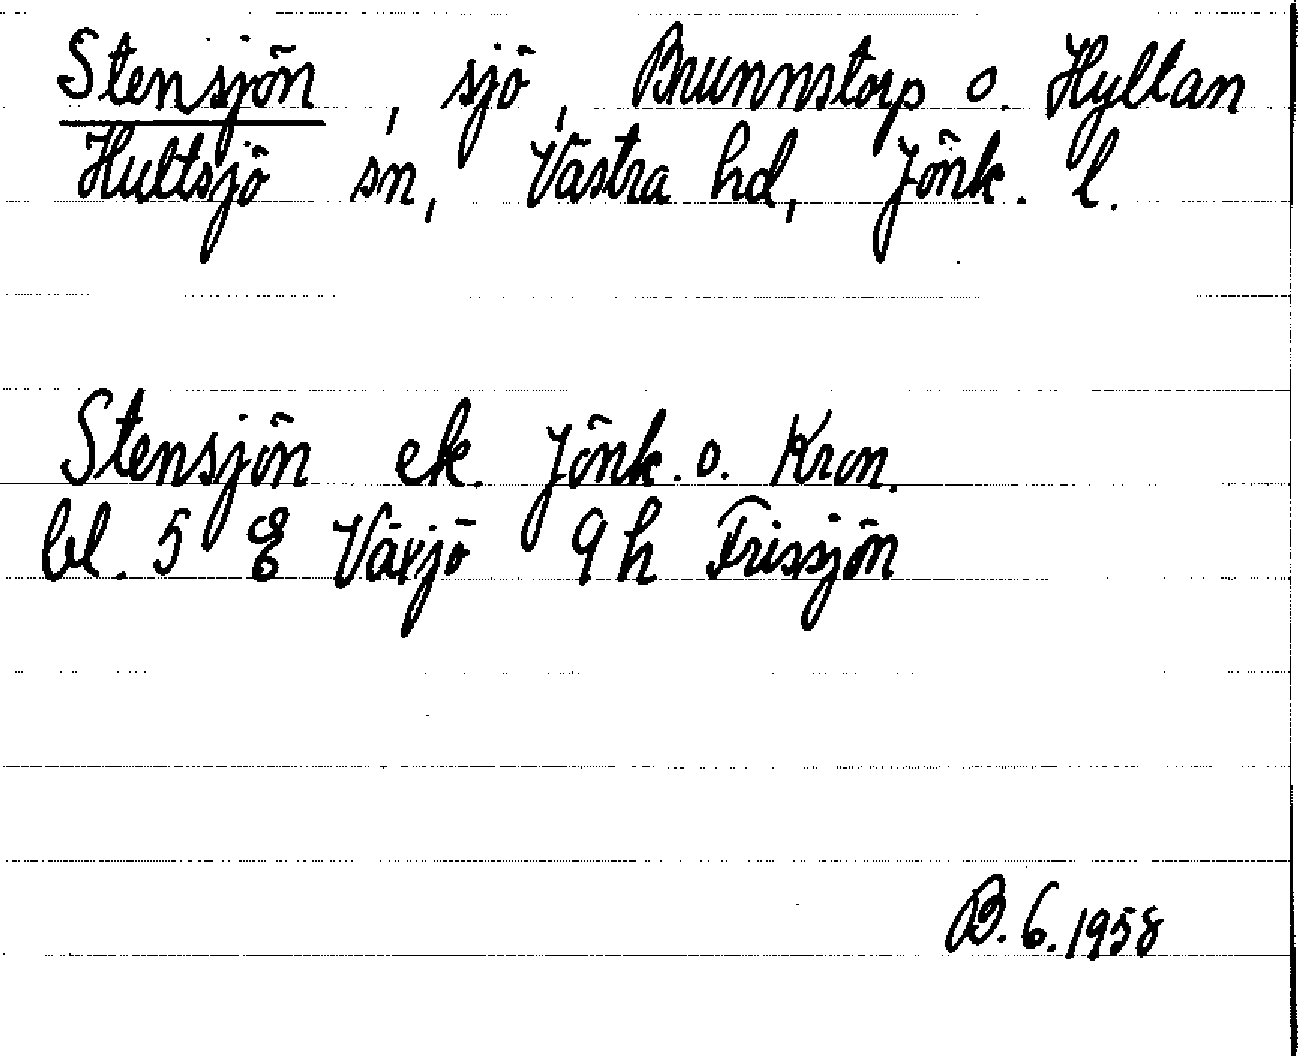 Stensjön, sjö, Brunnstorp o. Hyltan
Hultsjö sn, Västra hd, Jönk. l.
Stensjön ek. Jönk. o. Kron.
bl. 5 E Växjö 9 h Frissjön
B. 6. 1958